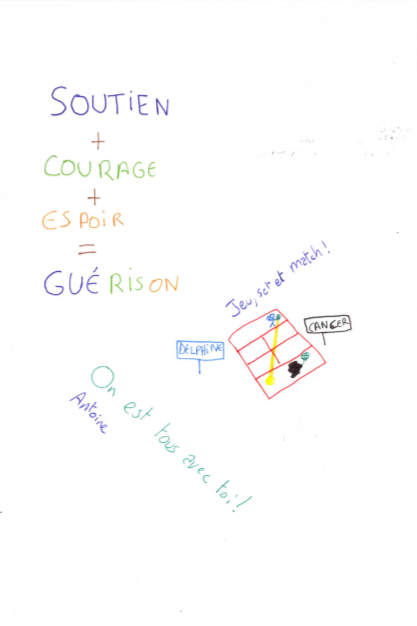 SOUTIEN
+
COURAGE
+
ESPOIR
=
GUÉRISON
Jeu, set et match!
CANCER
DELPHINE
On est tous avec toi!
Antoine